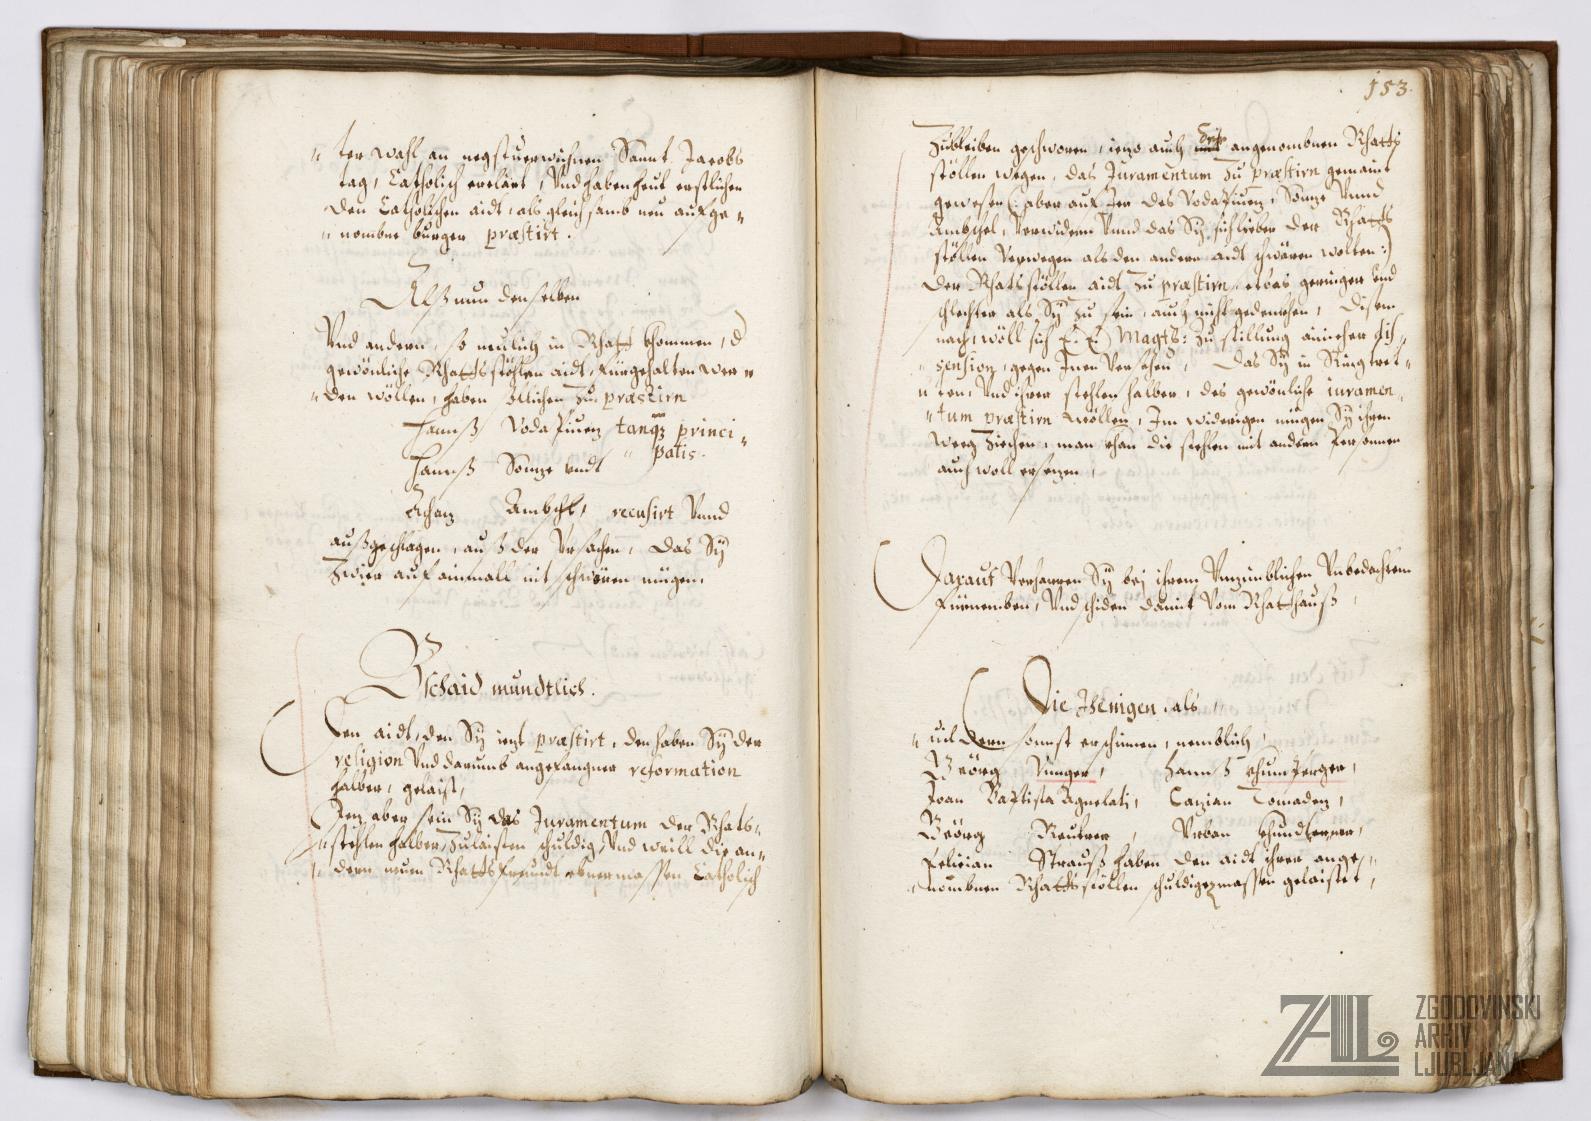 ter wahl an negstuerwichnen Sannt Jacobs
tag, Catholisch erclärt, Vnd haben heut erstlichen
den Catholischen aidt, als gleichsamb neu aufge-
nombne burger præstirt.
Alß nun denselben
Vnd andern, so neulich in Rhatt khommen, d
gewönliche Rhattsstöhlen aidt, fürgehalten wer
den wöllen, haben etlichen zu præstirn
Hannß Vodapiuez tanqz princi-
patis.
Hannß Sonze vndt
Achaz Ambschl, recusirt Vnnd
außgeschlagen, auß der Vrsachen, das Sÿ
Zwier auf ainmall nit schwören mügen.
Bschaid mundtlich.
Den aidt, den Sÿ iezt præstirt, den haben Sÿ der
religion Vnd darumb angefangner reformation
halber, gelaist,
Jezt aber sein Sÿ das Juramentum der Rhats-
stehlen halber, Zulaisten schuldig, Vnd weill die an-
dern neuen Rhattsfreundt ebnermassen Catholisch
153.
Zubleiben geschworen, iezo auch angenombnen Rhatts
stöllen wegen, das Juramentum Zu præstirn gemaint
gewesen (: aber auf Jer des Vodapiuez, Sonze Vnnd
Ambschel, Verwidern Vnnd das Sÿ sich lieber der Rhatts
stöllen Verwegen als den andern aidt schwären wolten :)
der Rhatsstöllen aidt Zu præstirn, etwas geringer vnd
schlechter als Sÿ Zu sein, auch nicht gedenkhen, disem
nach, wöll sich E: E: Magts: Zu stillung ainicher dis-
sension, gegen Jnen Versehen, das Sÿ in Ring tret-
ten, Vnd ihrer stehlen halber, das gewönliche iuramen
tum præstirn wöllen, Jm widerigen mügen Sÿ ihren
weeg Ziechen, man khan die stehlen mit andern Personnen
auch woll ersezen,
Darauf Verharren Sÿ bej ihrem Vnzimblichen Vnbedachtem
fürnemben, Vnd schiden damit vom Rhatthauß,
Die Jhenigen, als
uil deren sonnst erschinnen, nemblich,
Geörg Vunger, Hannß khumperger,
Joan Baptista Agnelati, Cazian Tomadez,
Geörg Reutrer, Vrban khundterer,
Felician Strauß haben den aidt ihrer ange-
nombnen Rhattsstöllen schuldigermassen gelaistet,
ZAL
ZGODOVINSKI
ARHIV
LJUBLJANA